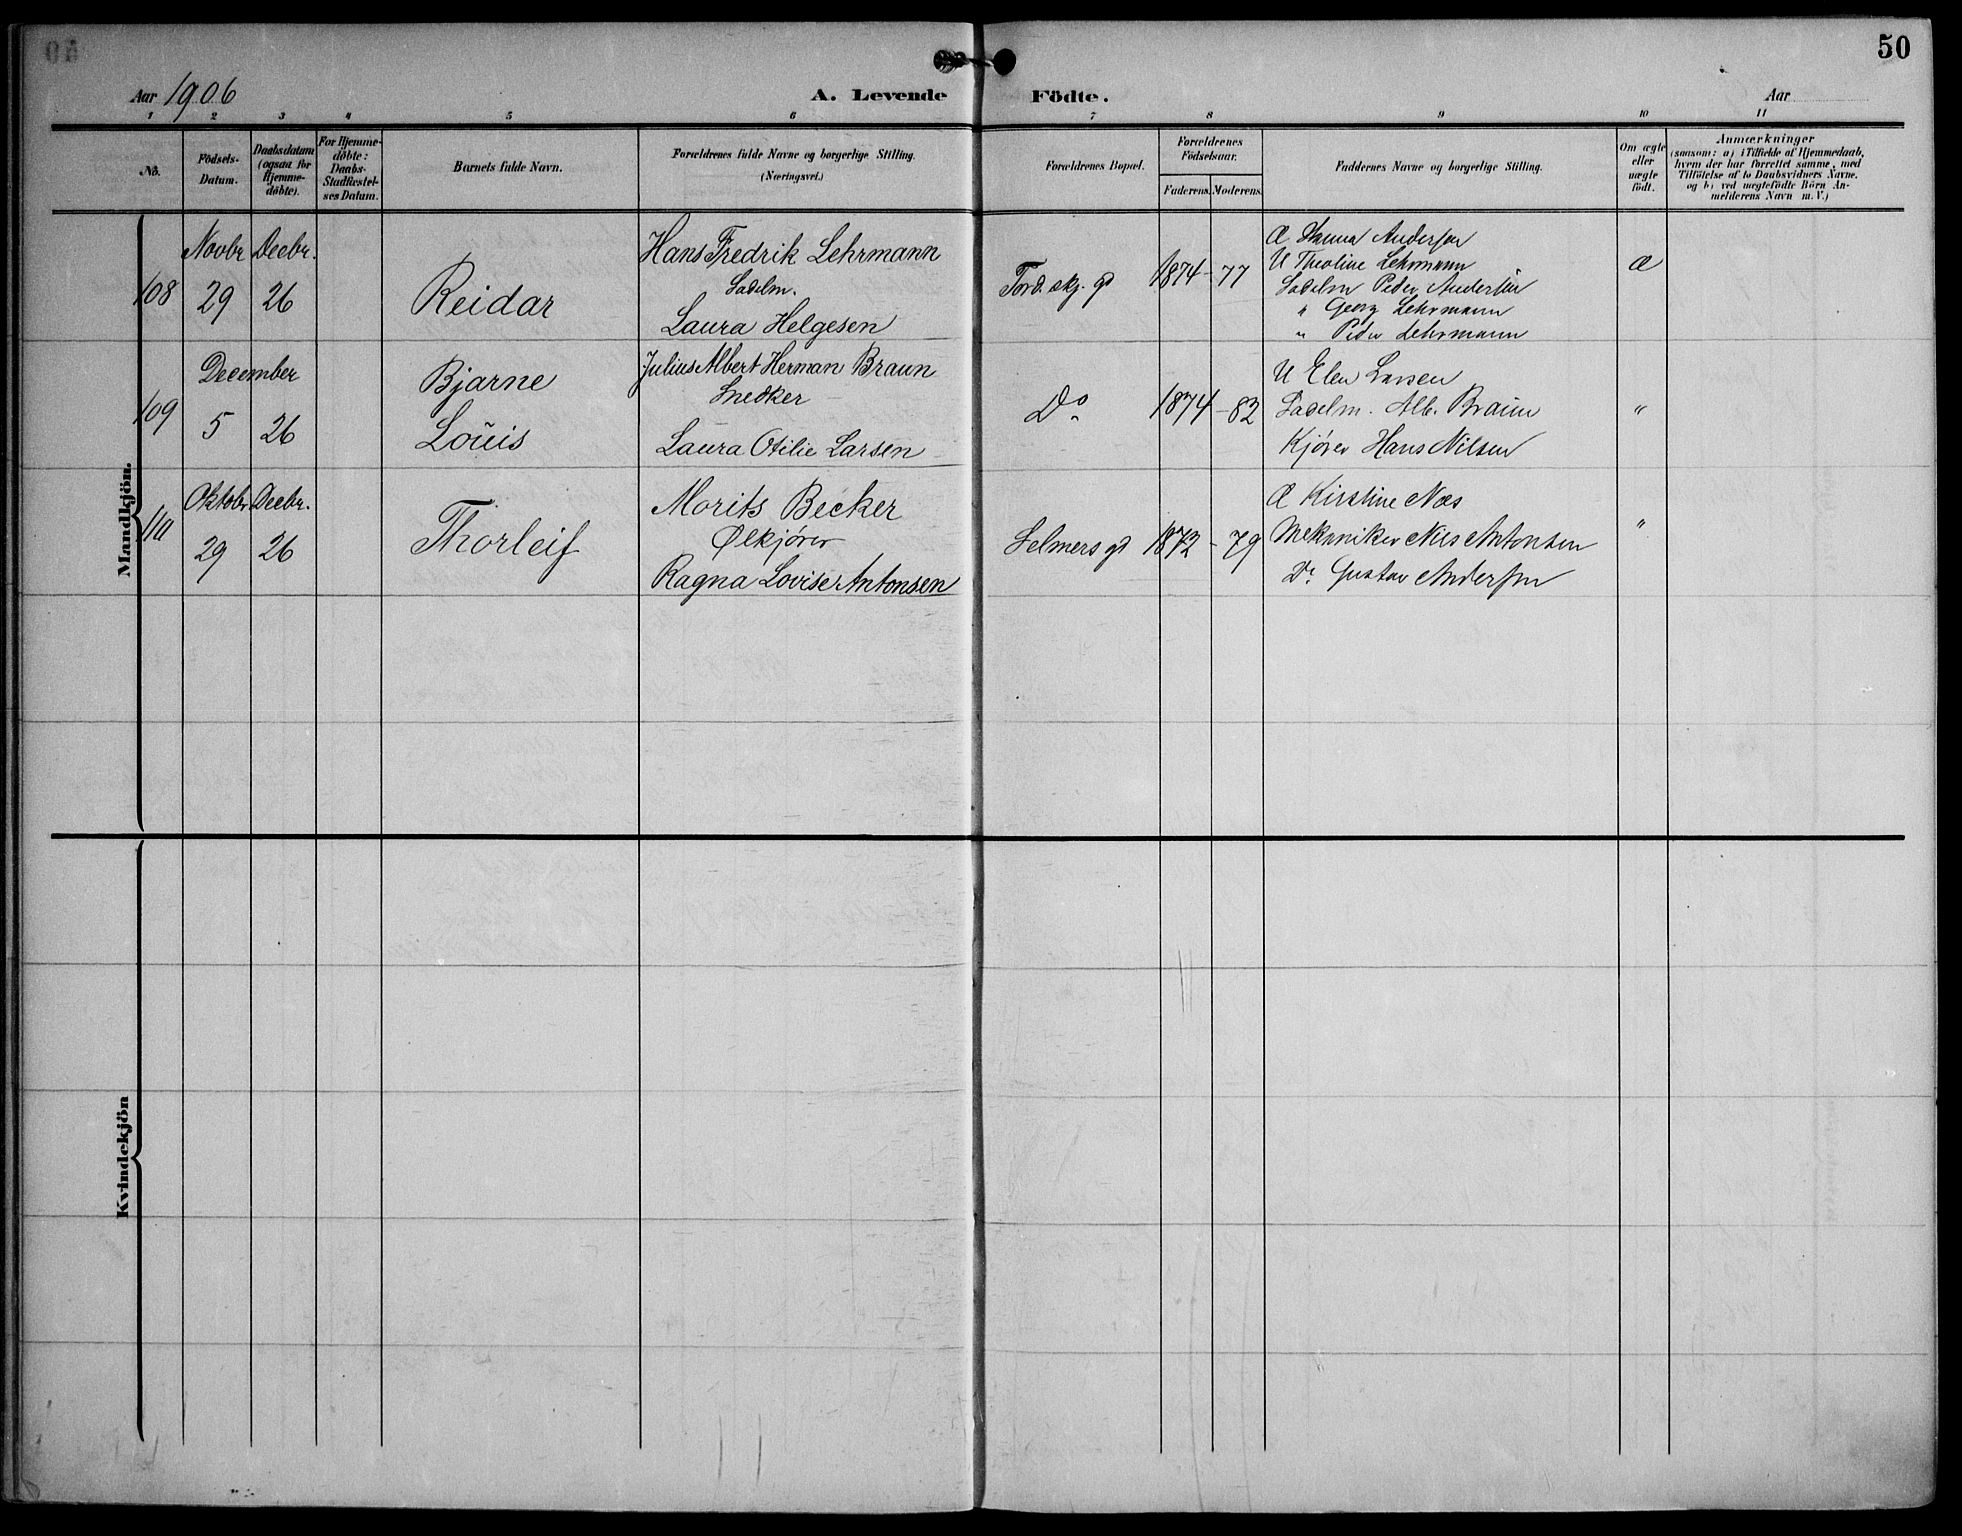 50
Aar 1906
A. Levende Födte.
Aar
1 2 3 4 5 6 7 8 9 10 11
No.
Födsels-Datum.
Daabsdatum (ogsaa for Hjemme-döbte).
For Hjemme-döbte: Daabs-Stadfæstel-ses Datum.
Barnets fulde Navn.
Forældrenes fulde Navne og borgerlige Stilling.
(Næringsvei.)
Forældrenes Bopæl.
Forældrenes Födselsaar.
Faderens. Moderens.
Faddernes Navne og borgerlige Stilling.
Om ægte eller uægte födt.
Anmærkninger
(saasom: a) i Tilfælde af Hjemmedaab,
hvem der har forrettet samme, med
Tilföielse af to Daabsvidners Navne.
og b) ved uægtefödte Börn An-
melderens Navn m. V.)
Mandkjön.
108
Novbr Decbr.
29 26
Reidar
Hans Fredrik Lehrmann
Sadelm.
Laura Helgesen
Tord.skj. gd
1874 - 77
Æ Hanna Andersen
U Theoline Lehrmann
Sadelm Peder Andersen
" Georg Lehrmann
" Peder Lehrmann
Æ
109
December
5 26
Bjarne
Louis
Julius Albert Herman Braun
Snedker
Laura Otilie Larsen
Do
1874 - 82
U Elen Larsen
Sadelm. Alb. Braun
Kjører Hans Nilsen
"
110
Oktobr Decbr.
29 26
Thorleif
Morits Becker
Ølkjører
Ragna Lovise Antonsen
Selmers gd
1872 - 79
Æ Kirstine Næs
Mekaniker Nils Antonsen
Do Gustav Andersen
"
Kvindekjön